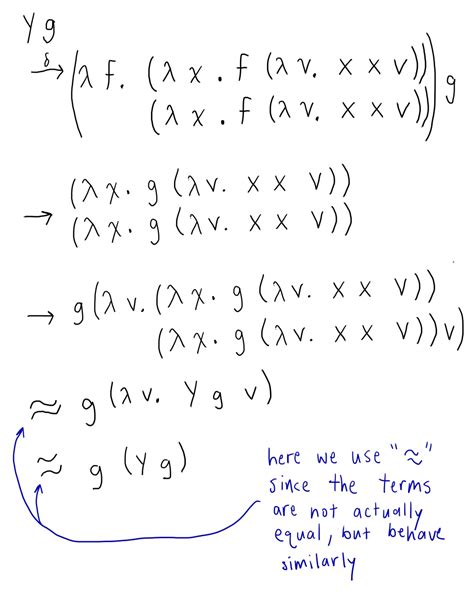 Y g
→δ (λ f. (λ x . f (λ v. x x v))
(λ x . f (λ v. x x v))) g
→ (λ x. g (λ v. x x v))
(λ x. g (λ v. x x v))
→ g (λ v. (λ x. g (λ v. x x v))
(λ x. g (λ v. x x v)) v)
≈ g (λ v. Y g v)
≈ g (Y g)
here we use "≈"
since the terms
are not actually
equal, but behave
similarly